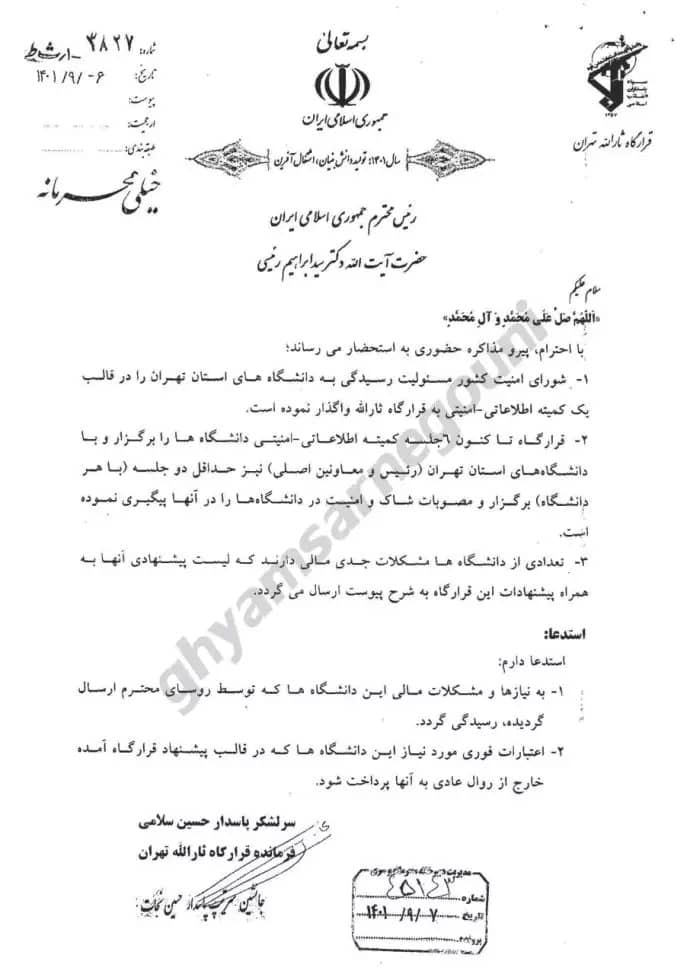 بسمه تعالی
جمهوری اسلامی ایران
سال ۱۴۰۱: تولید؛ دانش بنیان، اشتغال آفرین
سپاه
پاسداران
انقلاب
اسلامی
۱۳۵۷
قرارگاه ثارالله تهران
شماره: ۳۸۲۷
تاریخ: ۱۴۰۱/۹/۰۶
پیوست:
ارجحیت:
طبقه بندی:
خیلی محرمانه
رئیس محترم جمهوری اسلامی ایران
حضرت آیت الله دکتر سید ابراهیم رئیسی
سلام علیکم
«اَللّهُمَّ صَلِّ عَلی مُحَمَّدٍ وَ آلِ مُحَمَّدٍ»
با احترام، پیرو مذاکره حضوری به استحضار می رساند؛
۱- شورای امنیت کشور مسئولیت رسیدگی به دانشگاه های استان تهران را در قالب
یک کمیته اطلاعاتی-امنیتی به قرارگاه ثارالله واگذار نموده است.
۲- قرارگاه تا کنون ۶جلسه کمیته اطلاعاتی-امنیتی دانشگاه ها را برگزار و با
دانشگاه‌های استان تهران (رئیس و معاونین اصلی) نیز حداقل دو جلسه (با هر
دانشگاه) برگزار و مصوبات شاک و امنیت در دانشگاه‌ها را در آنها پیگیری نموده
است.
۳- تعدادی از دانشگاه ها مشکلات جدی مالی دارند که لیست پیشنهادی آنها به
همراه پیشنهادات این قرارگاه به شرح پیوست ارسال می گردد.
استدعا:
استدعا دارم:
۱- به نیازها و مشکلات مالی این دانشگاه ها که توسط روسای محترم ارسال
گردیده، رسیدگی گردد.
۲- اعتبارات فوری مورد نیاز این دانشگاه ها که در قالب پیشنهاد قرارگاه آمده
خارج از روال عادی به آنها پرداخت شود.
سرلشکر پاسدار حسین سلامی
فرمانده قرارگاه ثارالله تهران
جانشین سرتیپ پاسدار حسین نجات
شماره:
تاریخ ۱۴۰۱/۹/۷
پرونده:
ghyamsarnegouni